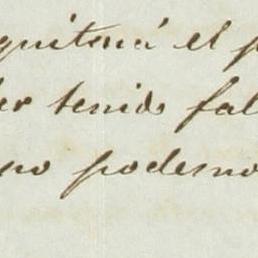 quitená el p
er tenido fal
no podemo